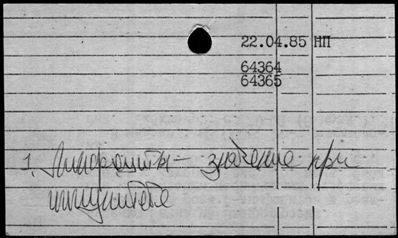 22.04.85 НП
64364
64365
1. Лимфоциты – значение при
иммунитете